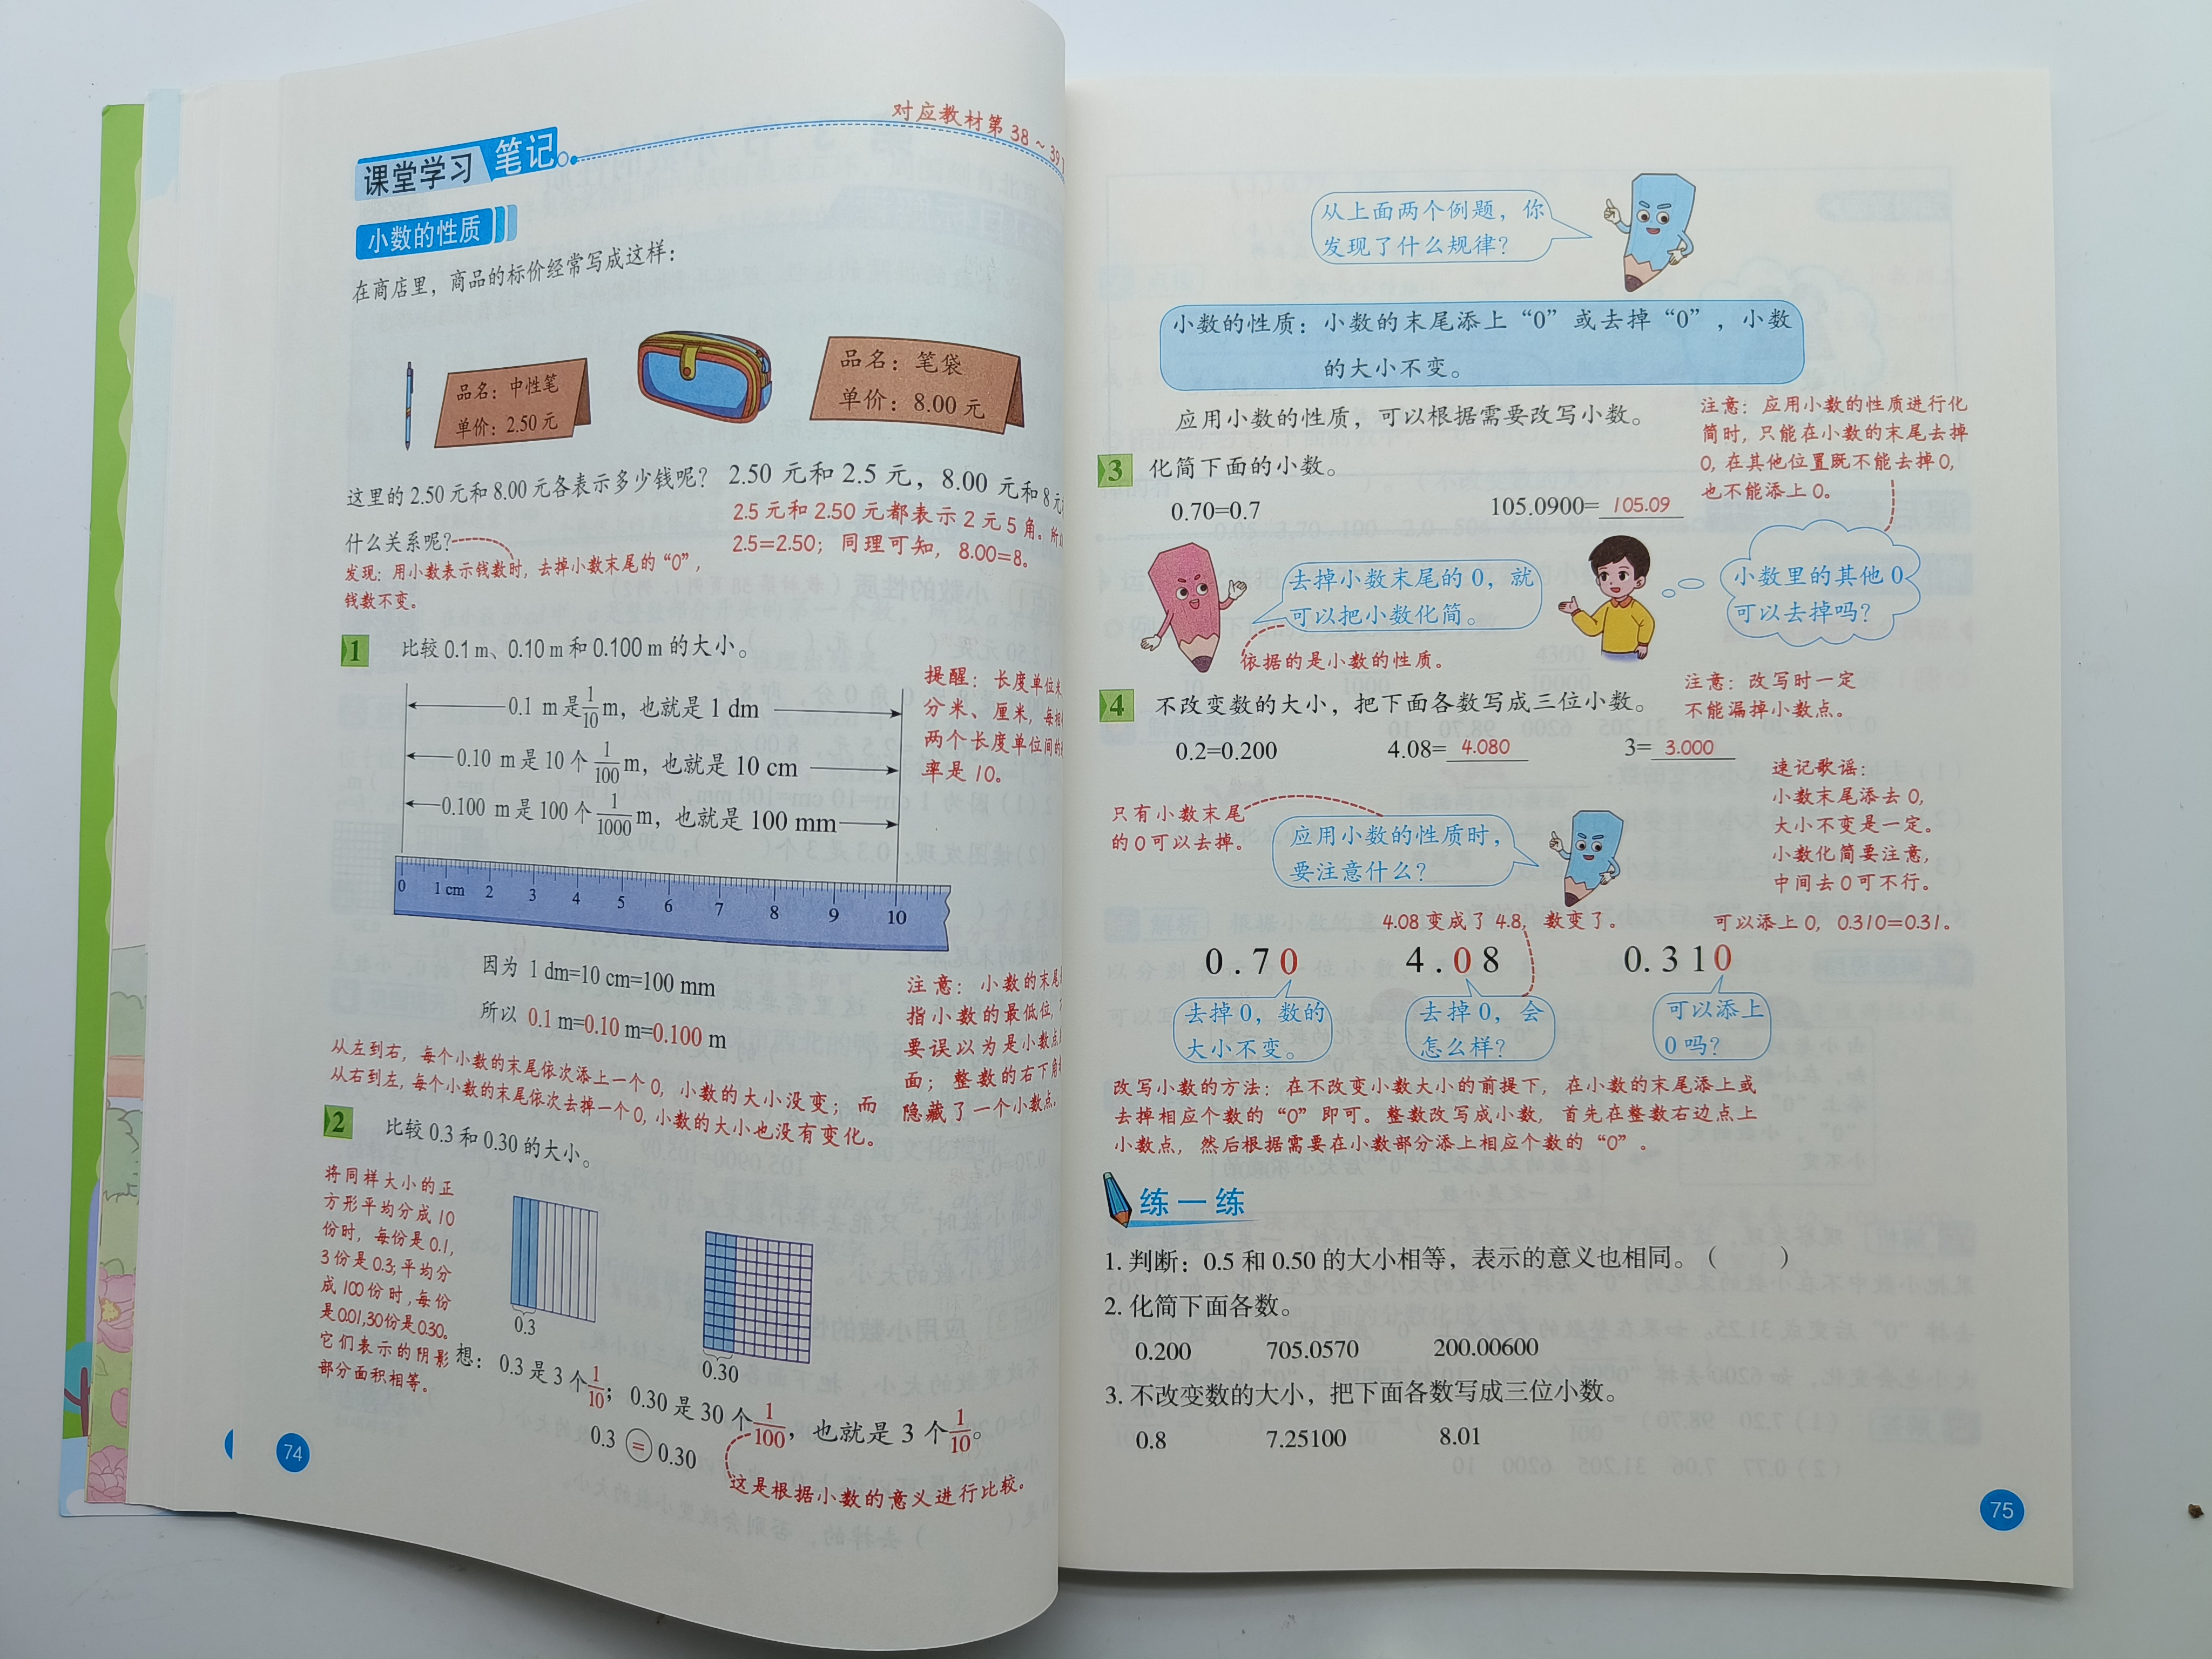 对应教材第 38 ~ 39
课堂学习 笔记
小数的性质
在商店里，商品的标价经常写成这样：
品名：中性笔
单价：2.50 元
品名：笔袋
单价：8.00 元
这里的 2.50 元和 8.00 元各表示多少钱呢？2.50 元和 2.5 元，8.00 元和 8 元
什么关系呢？
2.5 元和 2.50 元都表示 2 元 5 角。所
2.5=2.50；同理可知，8.00=8。
发现：用小数表示钱数时，去掉小数末尾的“0”，
钱数不变。
1 比较 0.1 m、0.10 m 和 0.100 m 的大小。
0.1 m 是 1/10 m，也就是 1 dm
0.10 m 是 10 个 1/100 m，也就是 10 cm
0.100 m 是 100 个 1/1000 m，也就是 100 mm
提醒：长度单位米
分米、厘米，每相
两个长度单位间的
率是 10。
0 1 cm 2 3 4 5 6 7 8 9 10
因为 1 dm=10 cm=100 mm
所以 0.1 m=0.10 m=0.100 m
注意：小数的末尾
指小数的最低位，
要误以为是小数点
面；整数的右下角
隐藏了一个小数点。
从左到右，每个小数的末尾依次添上一个 0，小数的大小没变；而
从右到左，每个小数的末尾依次去掉一个 0，小数的大小也没有变化。
2 比较 0.3 和 0.30 的大小。
将同样大小的正
方形平均分成 10
份时，每份是 0.1，
3 份是 0.3；平均分
成 100 份时，每份
是 0.01，30 份是 0.30。
它们表示的阴影
部分面积相等。
0.3
0.30
想：0.3 是 3 个 1/10；0.30 是 30 个 1/100，也就是 3 个 1/10。
0.3 = 0.30
这是根据小数的意义进行比较。
74
从上面两个例题，你
发现了什么规律？
小数的性质：小数的末尾添上“0”或去掉“0”，小数
的大小不变。
应用小数的性质，可以根据需要改写小数。
注意：应用小数的性质进行化
简时，只能在小数的末尾去掉
0，在其他位置既不能去掉 0，
也不能添上 0。
3 化简下面的小数。
0.70=0.7 105.0900= 105.09
去掉小数末尾的 0，就
可以把小数化简。
小数里的其他 0
可以去掉吗？
依据的是小数的性质。
4 不改变数的大小，把下面各数写成三位小数。
注意：改写时一定
不能漏掉小数点。
0.2=0.200 4.08= 4.080 3= 3.000
速记歌谣：
小数末尾添去 0，
大小不变是一定。
小数化简要注意，
中间去 0 可不行。
只有小数末尾
的 0 可以去掉。
应用小数的性质时，
要注意什么？
4.08 变成了 4.8，数变了。
可以添上 0，0.310=0.31。
0.70 4.08 0.310
去掉 0，数的
大小不变。
去掉 0，会
怎么样？
可以添上
0 吗？
改写小数的方法：在不改变小数大小的前提下，在小数的末尾添上或
去掉相应个数的“0”即可。整数改写成小数，首先在整数右边点上
小数点，然后根据需要在小数部分添上相应个数的“0”。
练一练
1. 判断：0.5 和 0.50 的大小相等，表示的意义也相同。（ ）
2. 化简下面各数。
0.200 705.0570 200.00600
3. 不改变数的大小，把下面各数写成三位小数。
0.8 7.25100 8.01
75